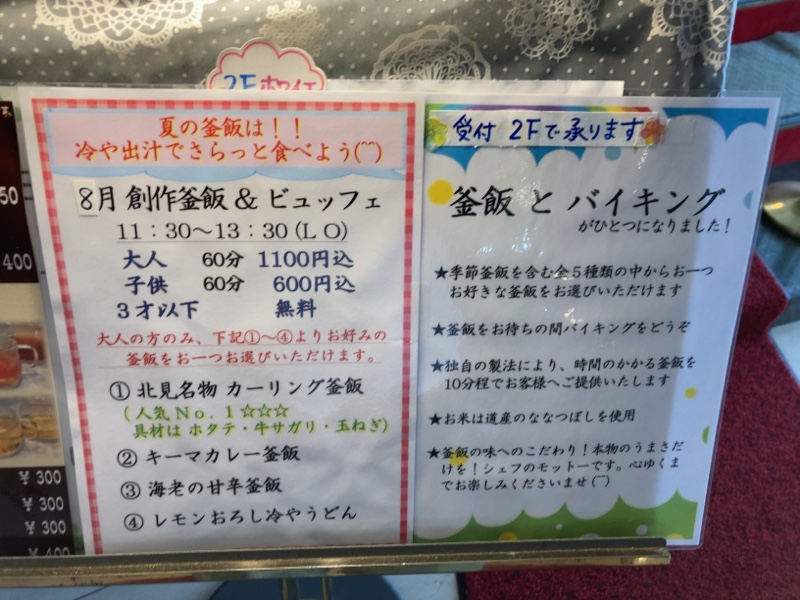 2F ホワイエ
夏の釜飯は！！
冷や出汁でさらっと食べよう(^^)
8月 創作釜飯 & ビュッフェ
11：30～13：30(LO)
大人 60分 1100円込
子供 60分 600円込
3才以下 無料
大人の方のみ、下記①～④よりお好みの
釜飯をお一つお選びいただけます。
① 北見名物 カーリング釜飯
(人気No.1☆☆☆
具材は ホタテ・牛サガリ・玉ねぎ)
② キーマカレー釜飯
③ 海老の甘辛釜飯
④ レモンおろし冷やうどん
受付 2Fで承ります
釜飯 と バイキング
がひとつになりました！
★季節釜飯を含む全5種類の中からお一つ
お好きな釜飯をお選びいただけます
★釜飯をお待ちの間バイキングをどうぞ
★独自の製法により、時間のかかる釜飯を
10分程でお客様へご提供いたします
★お米は道産のななつぼしを使用
★釜飯の味へのこだわり！本物のうまさだ
けを！シェフのモットーです。心ゆくま
でお楽しみくださいませ(^^)
50
400
¥300
¥300
¥300
¥400